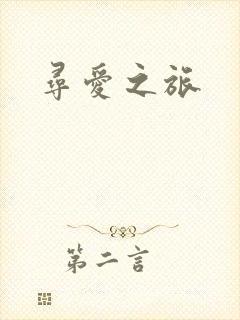 尋愛之旅
第二言